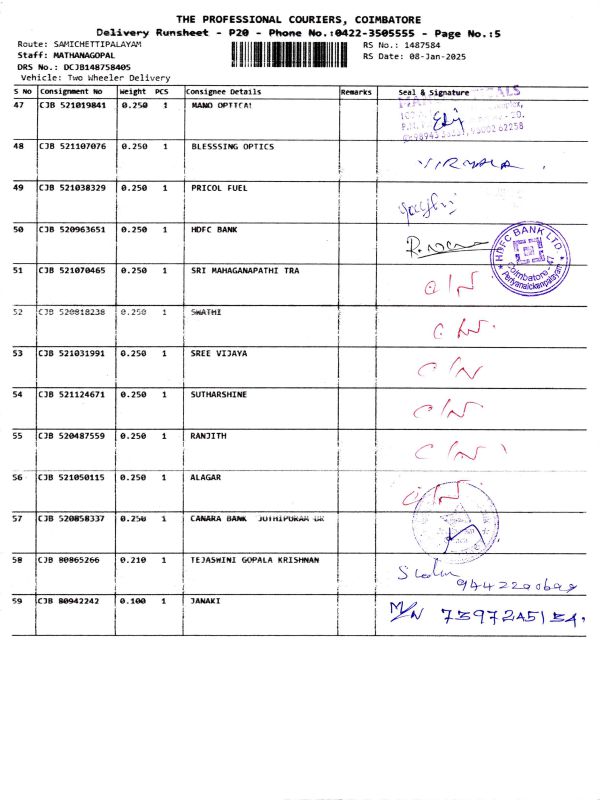 THE PROFESSIONAL COURIERS, COIMBATORE
Delivery Runsheet - P20 - Phone No.:0422-3505555 - Page No.:5
Route: SAMICHETTIPALAYAM RS No.: 1487584
Staff: MATHANAGOPAL RS Date: 08-Jan-2025
DRS No.: DCJB148758405
Vehicle: Two Wheeler Delivery
S No Consignment No Weight PCS Consignee Details Remarks Seal & Signature
47 CJB 521019841 0.250 1 MANO OPTICAL
48 CJB 521107076 0.250 1 BLESSSING OPTICS
49 CJB 521038329 0.250 1 PRICOL FUEL
50 CJB 520963651 0.250 1 HDFC BANK
HDFC BANK LTD
Coimbatore - 47
Periyanaickenpalayam
51 CJB 521070465 0.250 1 SRI MAHAGANAPATHI TRA
52 CJB 520818238 0.250 1 SWATHI
53 CJB 521031991 0.250 1 SREE VIJAYA
54 CJB 521124671 0.250 1 SUTHARSHINE
55 CJB 520487559 0.250 1 RANJITH
56 CJB 521050115 0.250 1 ALAGAR
57 CJB 520858337 0.250 1 CANARA BANK JOTHIPURAM BR
58 CJB 80865266 0.210 1 TEJASWINI GOPALA KRISHNAN
59 CJB 80942242 0.100 1 JANAKI M/N 7397245134.